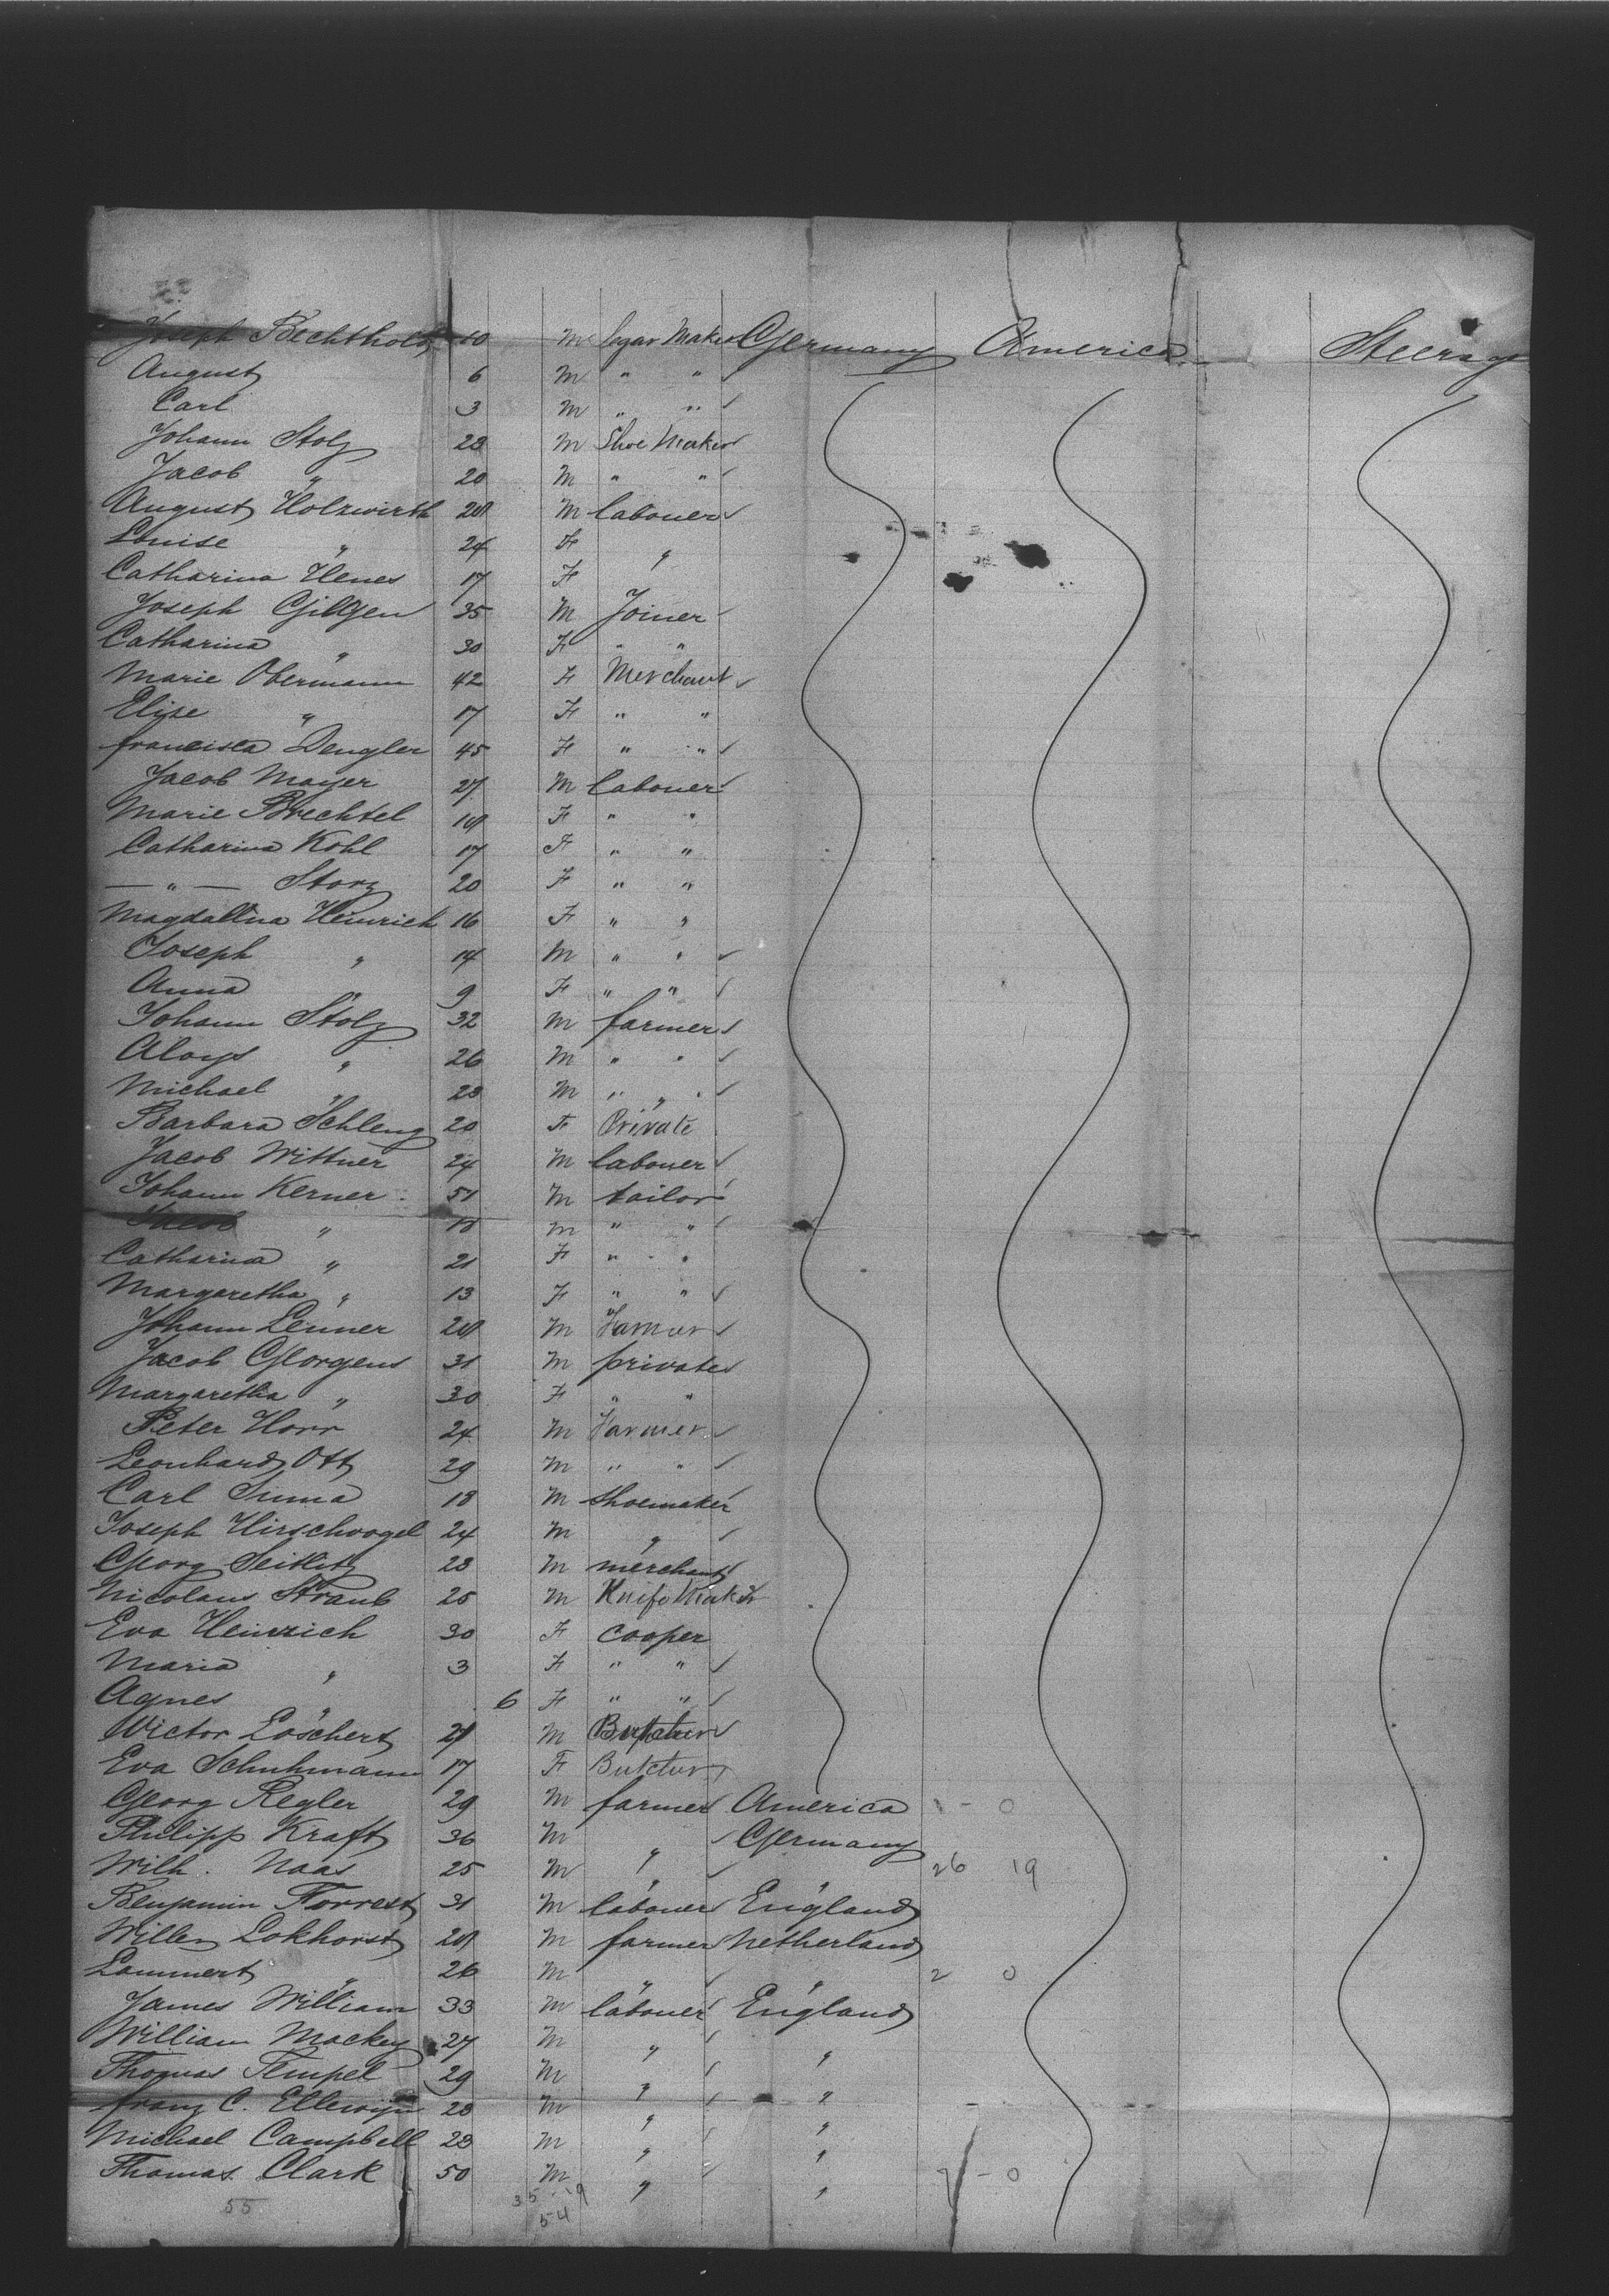 Joseph Bechthold 10 M Segar Maker Germany America Steerage
August 6 M " "
Carl 3 M " "
Johann Stolz 28 M Shoe Maker
Jacob " 20 M " "
August Holzwirth 28 M labouer
Louise " 24 F "
Catharina Henes 17 F
Joseph Gillgen 35 M Joiner
Catharina " 30 F " "
Marie Obermann 42 F Merchant
Elise " 17 F " "
francisca Dengler 45 F " "
Jacob Mayer 27 M labouer
Marie Brechtel 18 F " "
Catharina Kohl 17 F " "
— " — Storz 20 F " "
Magdallina Heinrich 16 F " "
Joseph " 14 M " "
Anna " 9 F " "
Johann Stolz 32 M farmer
Aloys " 26 M " "
Michael " 23 M " "
Barbara Schleng 20 F Private
Jacob Wittner 24 M labouer
Johann Kerner 51 M tailor
Jacob " M " "
Catharina " 21 F " "
Margaretha " 13 F " "
Johann Lenner 28 M Farmer
Jacob Georgens 31 M private
Margaretha " 30 F " "
Peter Horr 24 M Farmer
Leonhard Ott 29 M " "
Carl Summa 18 M Shoemaker
Joseph Hirschvogel 24 M "
Georg Seitlitz 28 M merchant
Nicolaus Straub 25 M Knife Maker
Eva Heinrich 30 F cooper
Maria " 3 F " "
Agnes " 6 F " "
Victor Löschert 21 M Butcher
Eva Schuhmann 17 F Butcher
Georg Regler 29 M farmer America 1 - 0
Philipp Kraft 36 M " Germany
Wilh. Naas 25 M " " 26 19
Benjamin Forrest 31 M labouer England
Willem Lokhorst 28 M farmer Netherland
Lammert " 26 M " " 2 0
James William 33 M labouer England
William Mackey 27 M " "
Thomas Tempel 29 M " "
franz C. 28 M " "
Michael Campbell 23 M " "
Thomas Clark 50 M " " 7 - 0
55 35 - 19
54